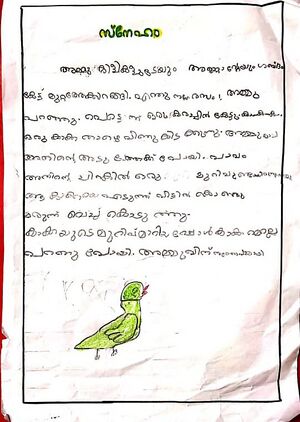 സ്നേഹം
അമ്മു കിളികളുടേയും അണ്ണാന്റേയും ശബ്ദം
കേട്ട് മുറ്റത്തേക്കിറങ്ങി. എന്തു നല്ല രസം! അമ്മു
പറഞ്ഞു. പെട്ടെന്ന് ഒരു കരച്ചിൽ കേട്ടു
ഒരു കാക്ക താഴെ വീണു കിടക്കുന്നു. അമ്മു
അതിന്റെ അടുത്തേക്ക് പോയി. പാവം
അതിന്റെ ചിറകിൽ ഒരു മുറിവുണ്ടായിരുന്നു
ആ കാക്കയെ എടുത്ത് വീട്ടിൽ കൊണ്ടു
മരുന്ന് വെച്ച് കൊടുത്തു.
കാക്കയുടെ മുറിവ് മാറിയപ്പോൾ കാക്ക
പറന്നു പോയി. അമ്മുവിന് സന്തോഷമായി